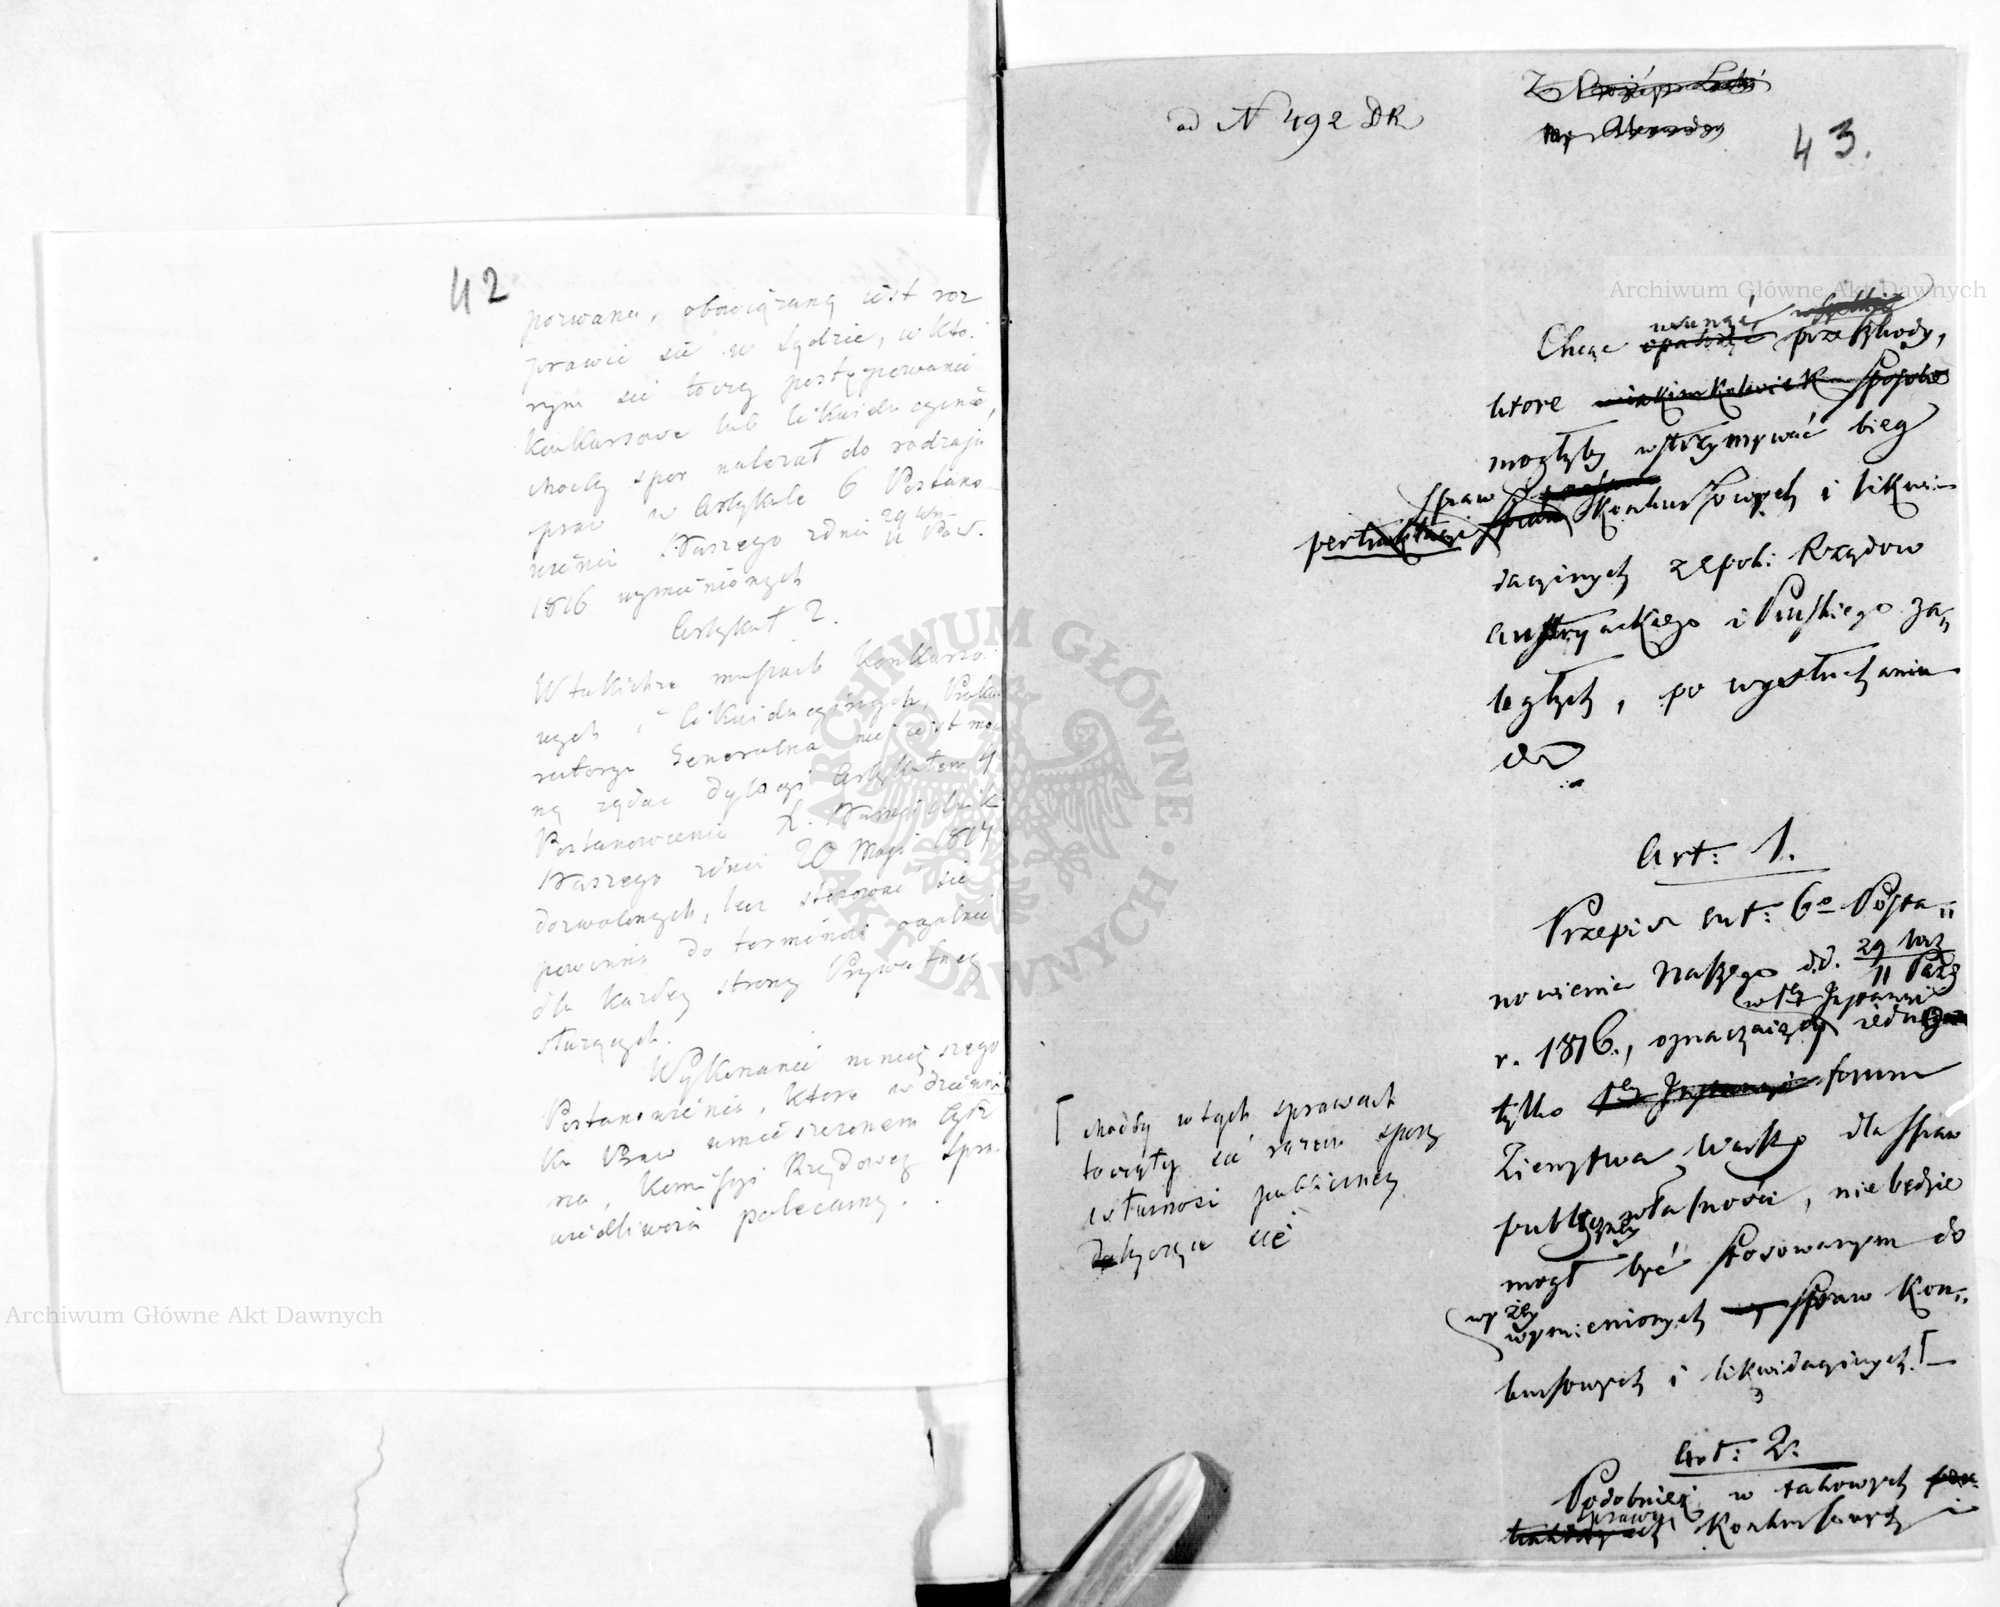 42
pozwaną, obowiązaną iest roz
prawić się w Sądzie, w któ-
rym się toczy postępowanie
konkursowe lub likwidacyjne,
choćby spór należał do rodzaju
spraw w Artykule 6 Postano
wienia Naszego z dnia 29 Wrz. 11 Paźd.
1816 wymienionych
Artykuł 2.
W takichże massach Konkurso-
wych i likwidacyinych, Proku-
ratorya Generalna nie iest mo-
ną żądać dylacyi Artykułem 4
Postanowienia X. Namiestnik
Naszego z dnia 20 Maja 1817
dozwolonych, lecz stosować się
powinna do terminów ogólnie
dla każdey strony Prywatney
służących.
Wykonanie ninieyszego
Postanowienia, które w dzienni
ku Praw umieszczonem być
ma, Kommissyi Rządowey Spra-
wiedliwości polecamy.
ad N 492 DR
43.
Chcąc usunąć przeszkody,
które
mogłyby wstrzymywać bieg
spraw Konkursowych i likwi-
dacyinych ze epoki Rządów
Austryackiego i Pruskiego za-
ległych, po wysłuchaniu
Art: 1.
Przepis art: 6o Posta-
nowienia Naszego d.d. 29 Wrz 11 Paźd
r. 1816., oznaczaiący w 1ey Instancyi iedno
tylko forum
Ziemstwa Warsko dla spraw
publiczney własności, nie będzie
mógł być stosowanym do
wyżey wymienionych spraw Kon-
kursowych i likwidacyinych.
choćby w tych sprawach
toczyły się razem spory
własności publiczney
dotyczące się
Art: 2.
Podobnież w takowych
sprawach Konkursowych i
Archiwum Główne Akt Dawnych
Archiwum Główne Akt Dawnych
ARCHIWUM GŁÓWNE AKT DAWNYCH